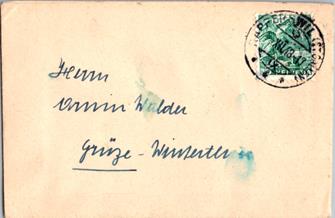 WIL
Herrn
Armin Walder
Grüze-Winterthur